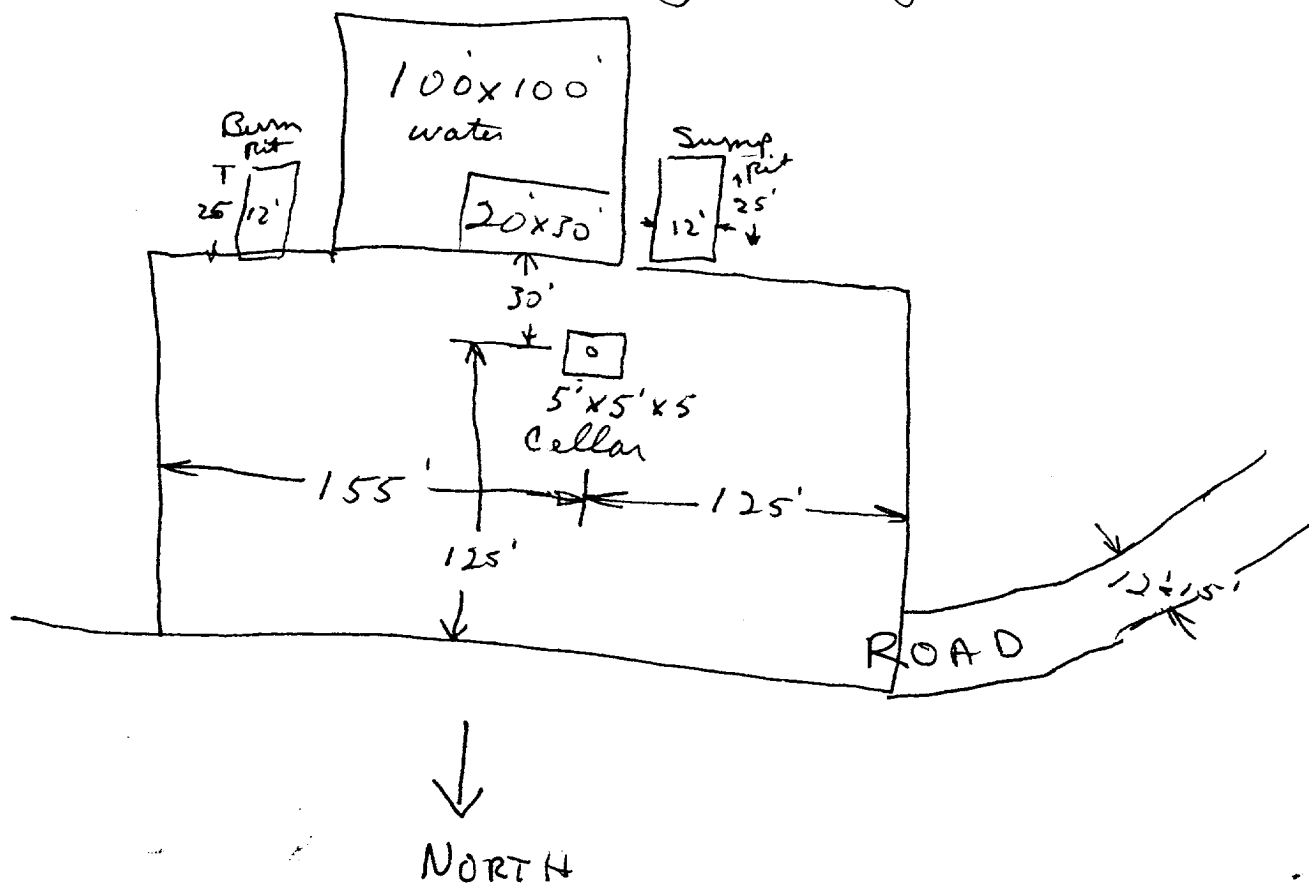 100'x100'
water
Burn
Pit
25
12'
20'x30'
Sump
Pit
25'
12'
30'
5'x5'x5
Cellar
155'
125'
125'
12'x15'
ROAD
NORTH